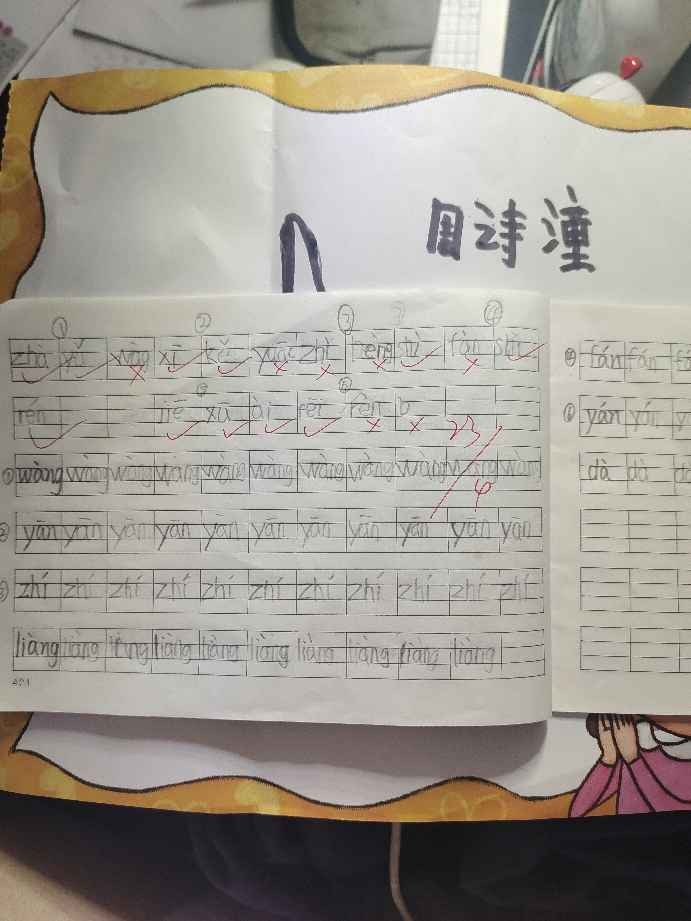 周诗潼
① ② ② ③ ④
zhà xǔ wàng xī kě yuǎc zhì hèng shì fàn shǐ
rén jiē xū ài fēi fèn b
23/4
① wàng wàng wàng wàng wàng wàng wàng wàng wàng wàng wàng
② yān yān yān yān yān yān yān yān yān yān yan
③ zhí zhí zhí zhí zhí zhí zhí zhí zhí zhí zhí
liàng liàng liàng liàng liàng liàng liàng liàng liàng liàng
④ fán fán fá
① yán yán y
dà dà dà